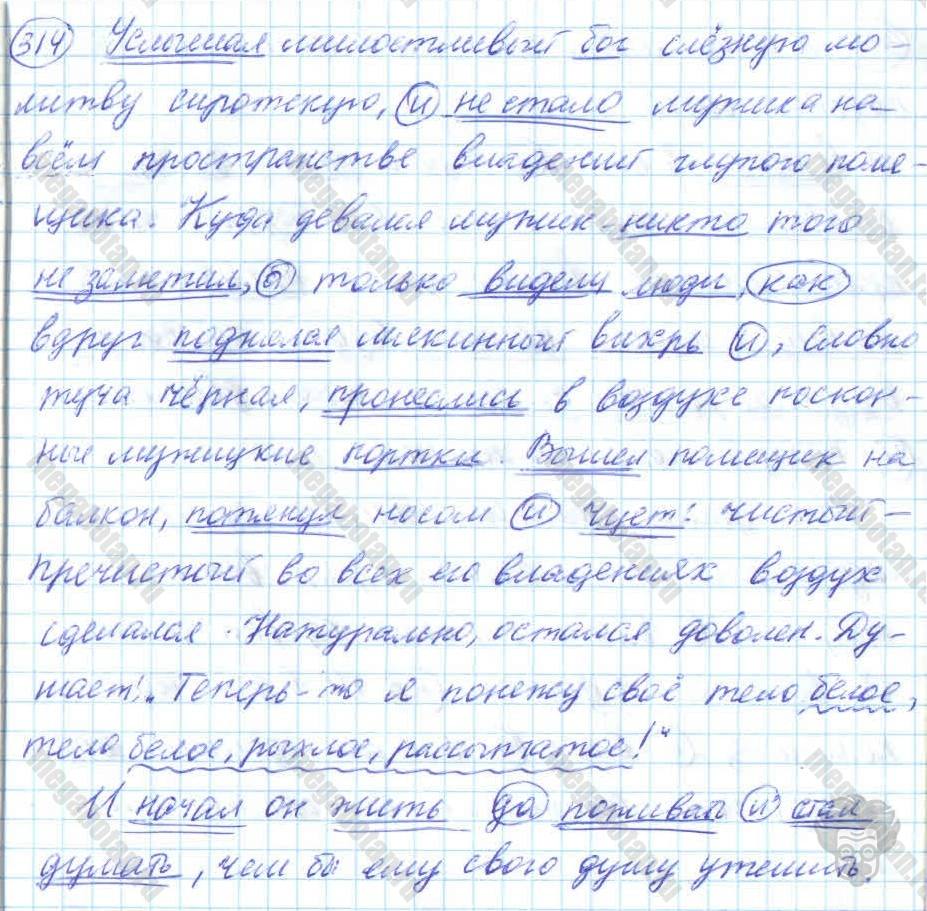 314 Услышал милостливый бог слёзную мо-
литву сиротскую, и не стало мужика на
всём пространстве владений глупого поме-
щика. Куда девался мужик - никто того
не заметил, а только видели люди, как
вдруг поднялся мякинный вихрь и, словно
туча чёрная, пронеслись в воздухе поскон-
ные мужицкие портки. Вышел помещик на
балкон, потянул носом и чует: чистый-
пречистый во всех его владениях воздух
сделался. Натурально, остался доволен. Ду-
мает: "Теперь-то я понежу своё тело белое,
тело белое, рыхлое, рассыпчатое!"
И начал он жить да поживать и стал
думать, чем бы ему свою душу утешить.
megabotan.ru